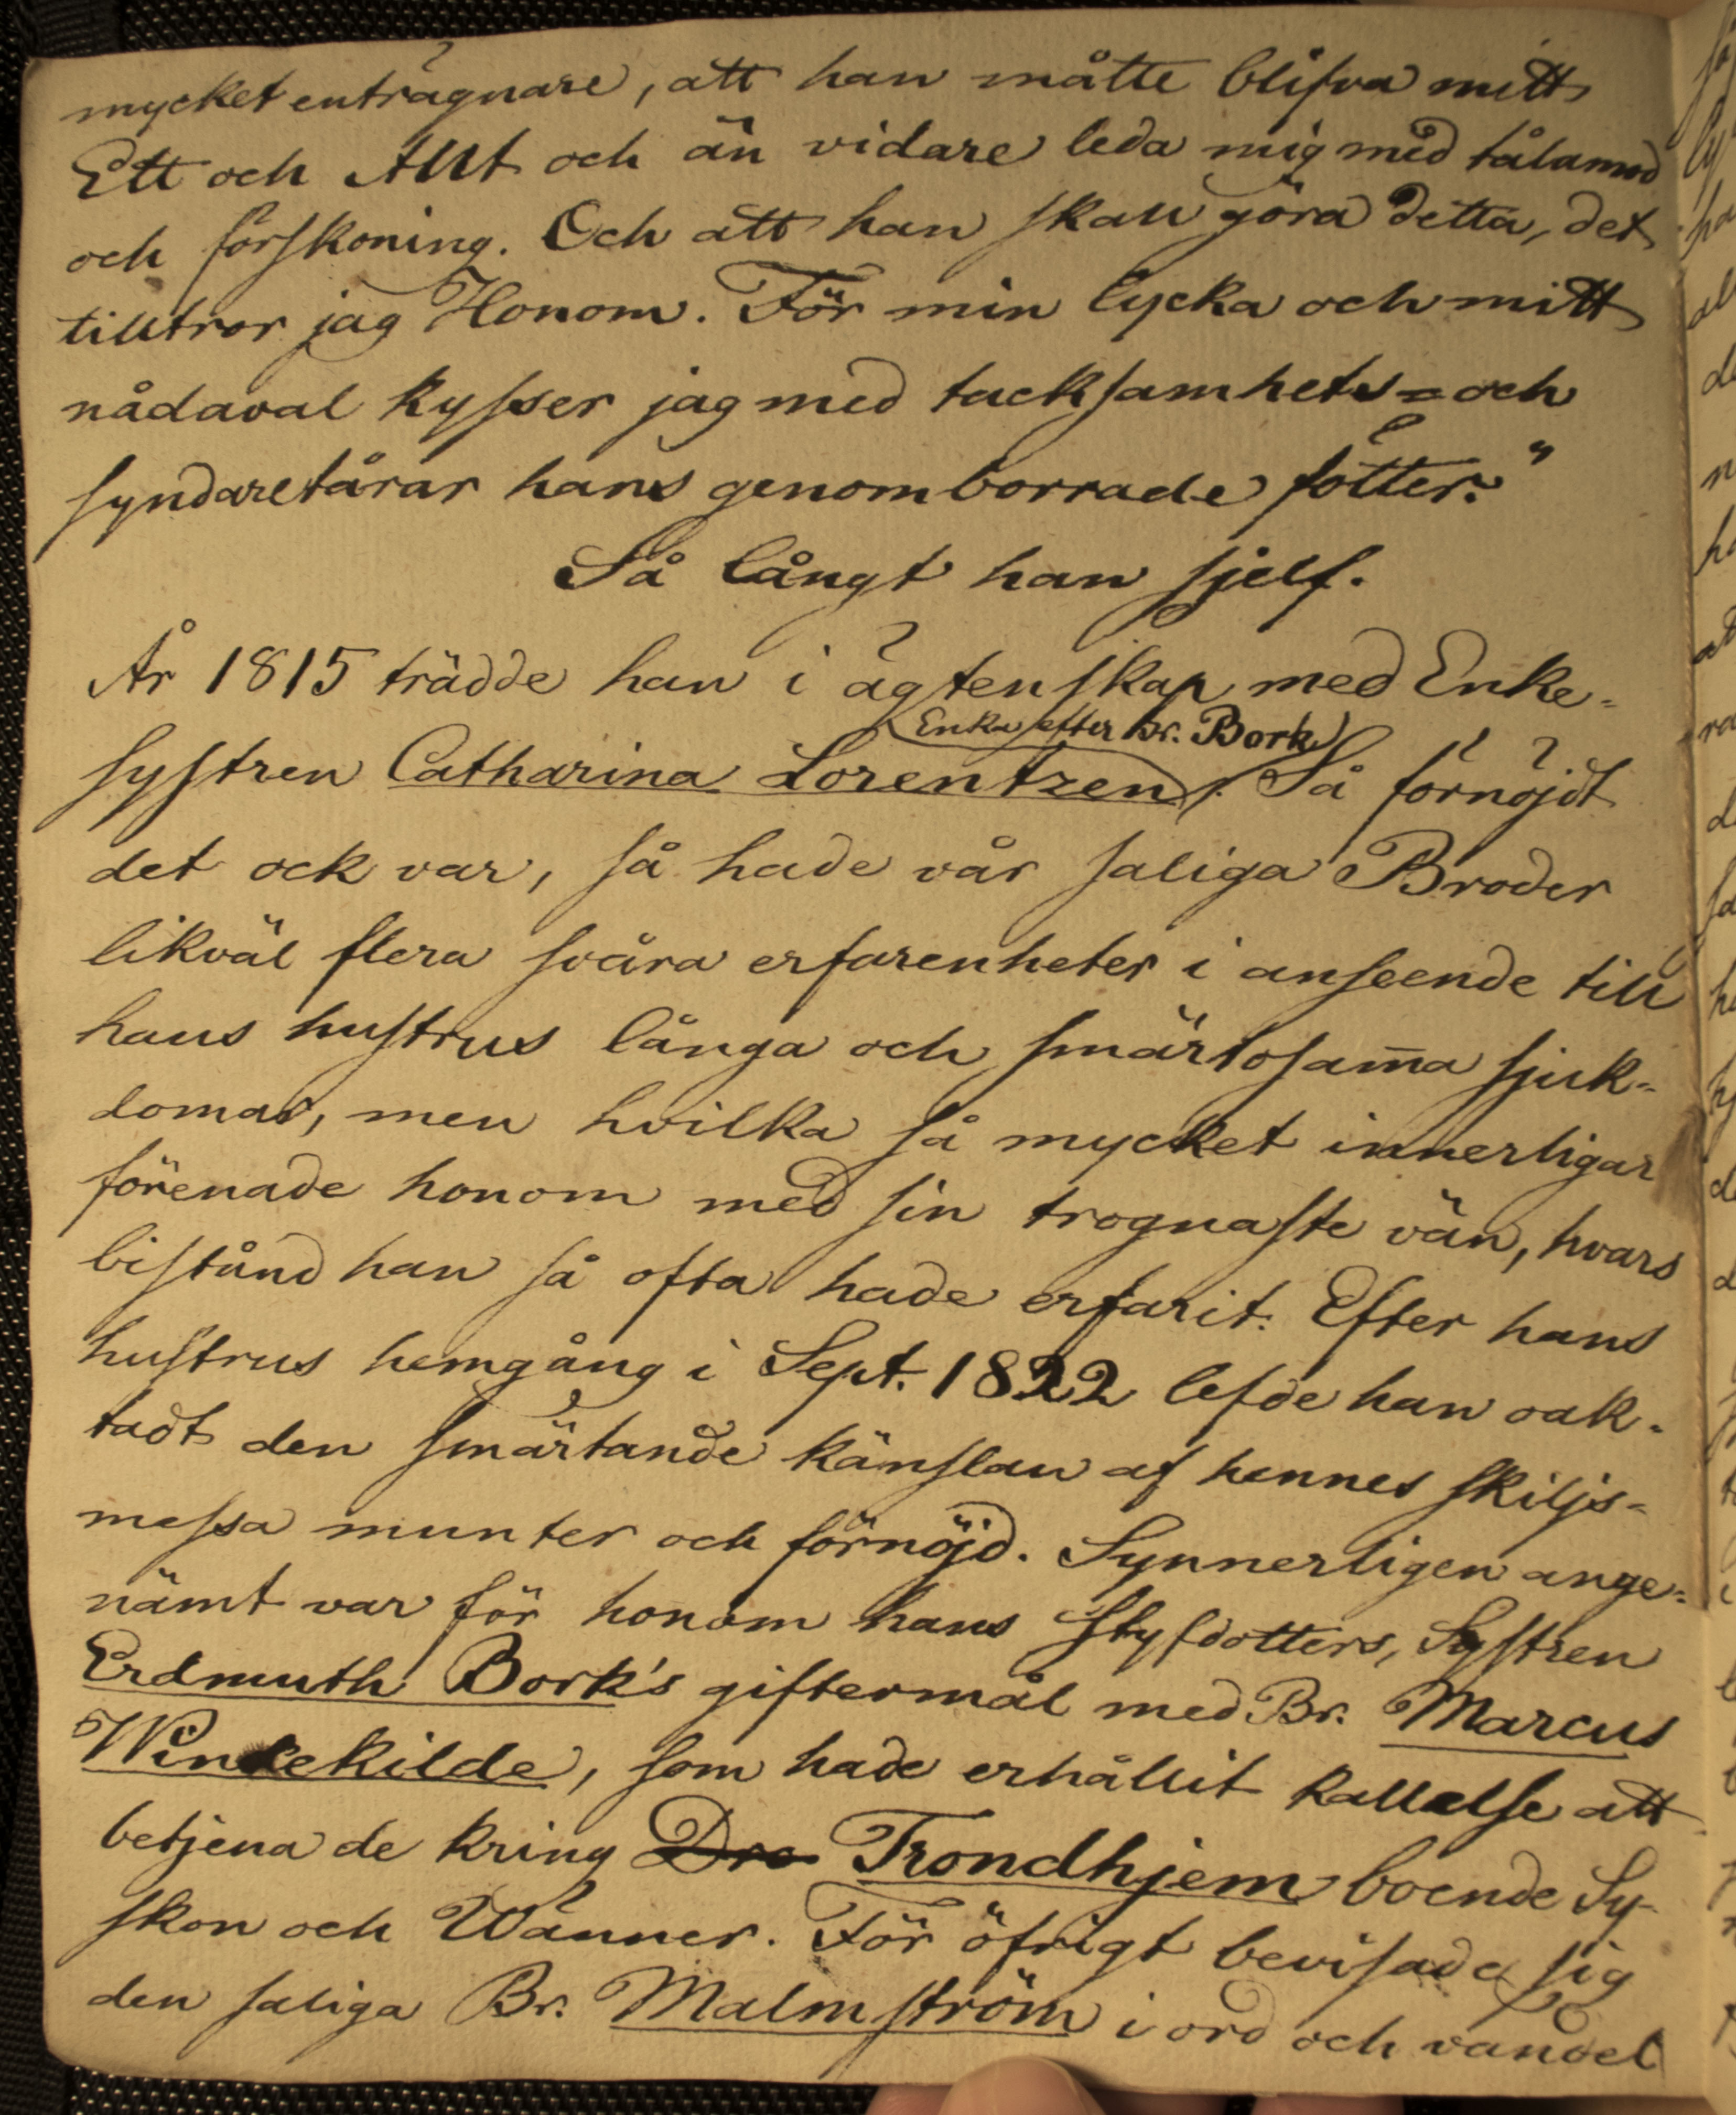 mycket enträgnare, att han måtte blifva mitt
Ett och Allt och än vidare leda mig med tålamod
och förskoning. Och att han skall göra detta, det
tilltror jag Honom. För min lycka och mitt
nådaval kysser jag med tacksamhets= och
syndaretårar hans genomborrade fötter."
Så långt han sjelf.
År 1815 trädde han i ägtenskap med Enke-
(Enka efter br. Bork)
systren Catharina Lorentzen. Så förnöjdt
det ock var, så hade vår saliga Broder
likväl flera svåra erfarenheter i anseende till
hans hustrus långa och smärtosam̅a sjuk-
domar, men hvilka så mycket innerligar
förenade honom med sin trognaste vän, hvars
bistånd han så ofta hade erfarit. Efter hans
hustrus hemgång i Sept. 1822 lefde han oak-
tadt den smärtande känslan af hennes skiljs-
messa munter och förnöjd. Synnerligen ange-
nämt var för honom hans styfdotters, Systren
Erdmuth Bork's giftermål med Br. Marcus
Windekilde, som hade erhållit kallelse att
betjena de kring Dro Trondhjem boende Sy-
skon och Wänner. För öfrigt bevisade sig
den saliga Br. Malmström i ord och vandel